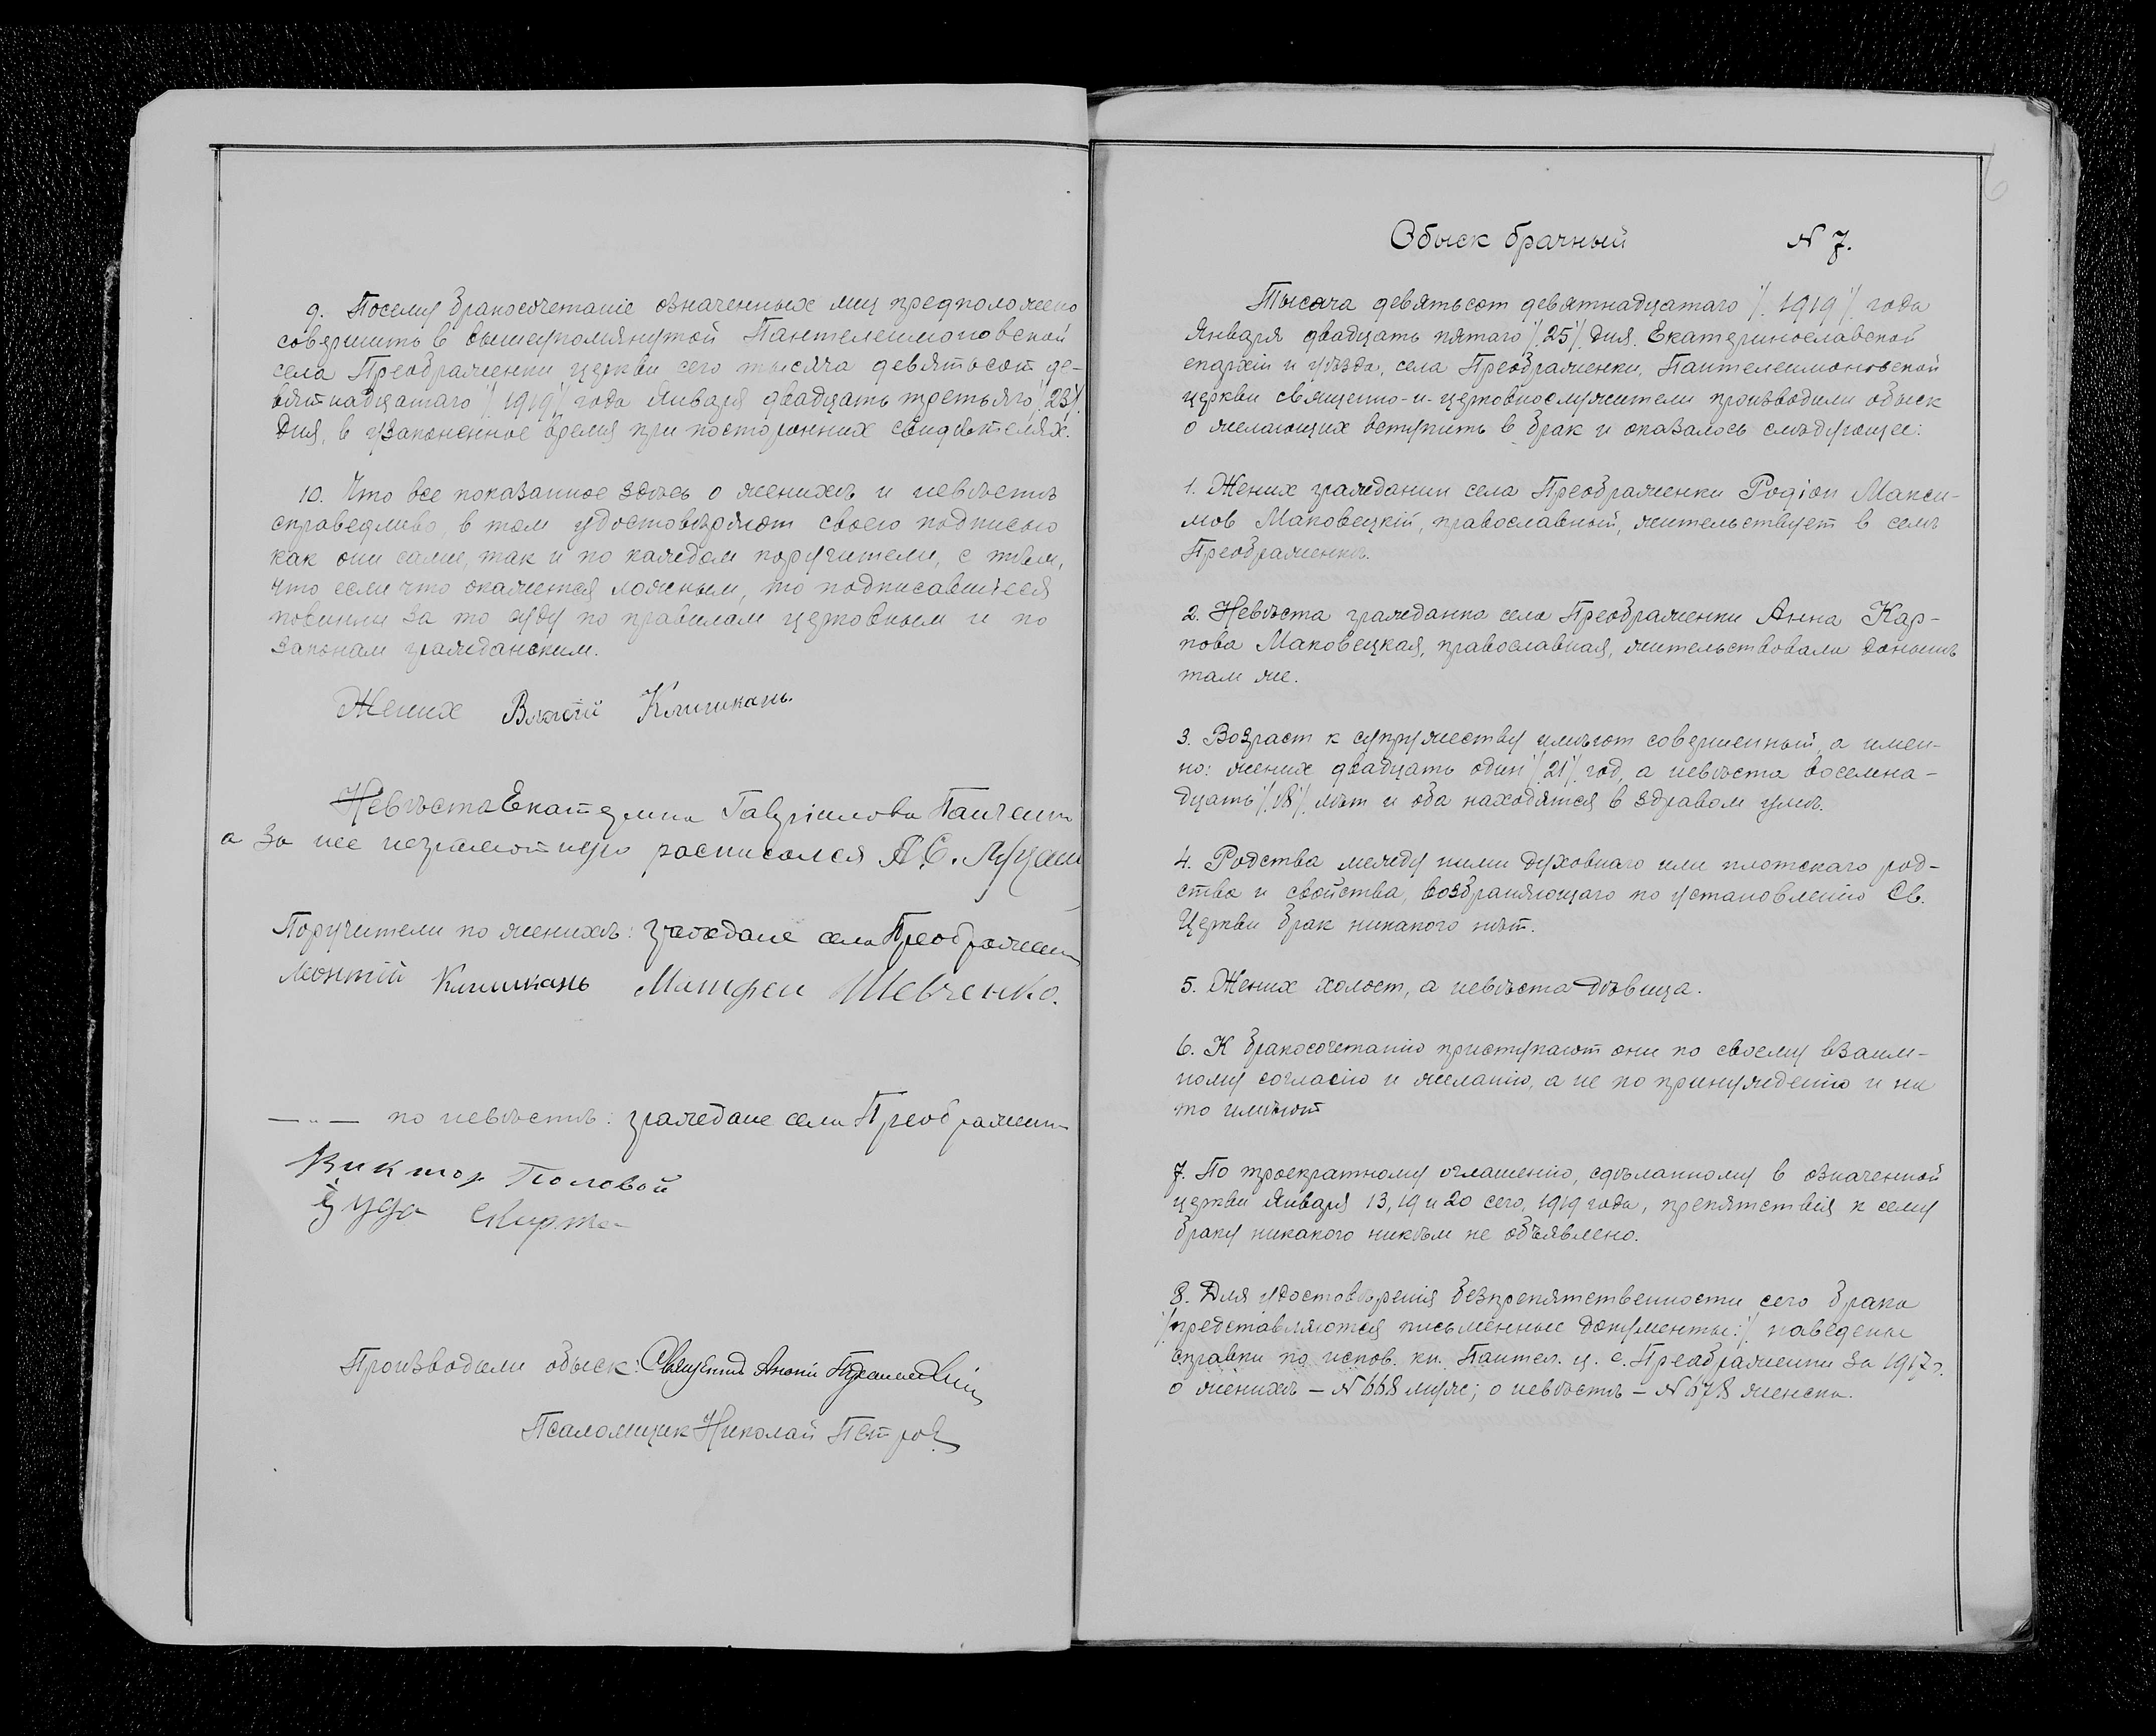 9. Посему бракосочетаніе означенных лиц предположено
совершить в вышеупомянутой Пантелеимоновской
села Преображенки церкви сего тысяча девятьсот де-
вятнадцатаго /. 1919 /. года Января двадцать третьяго /. 23 /.
дня, в узаконенное время при посторонних свидѣтелях.
10. Что все показанное здѣсь о женихѣ и невѣстѣ
справедливо, в том удостовѣряют своею подписью
как они сами, так и по каждом поручители, с тѣм,
что если что окажется ложным, то подписавшіеся
повинны за то суду по правилам церковным и по
законам гражданским.
Жених Клишкань.
Невѣста Екатерина Гавріилова
а за нее неграмотную росписался А. С.
Поручители по женихѣ: граждане села Преображенки
Леонтій Клишкань Матфей Шевченко.
— " — по невѣстѣ: граждане села Преображенки
Виктор Половой
Производили обыск: Священник
Псаломщик Николай Петров
Обыск брачный N 7.
Тысяча девятьсот девятнадцатаго /. 1919 /. года
Января двадцать пятаго /. 25 /. дня. Екатеринославской
епархіи и уѣзда, села Преображенки, Пантелеимоновской
церкви священно-и-церковнослужители производили обыск
о желающих вступить в брак и оказалось слѣдующее:
1. Жених гражданин села Преображенки Родіон Макси-
мов Маковецкій, православный, жительствует в селѣ
Преображенкѣ.
2. Невѣста гражданка села Преображенки Анна Кар-
пова Маковецкая, православная, жительствовала донынѣ
там же.
3. Возраст к супружеству имѣют совершенный, а имен-
но: жених двадцать один /. 21 /. год, а невѣста восемна-
дцать /. 18 /. лѣт и оба находятся в здравом умѣ.
4. Родства между ними духовнаго или плотскаго род-
ства и свойства, возбраняющаго по установленію Св.
Церкви брак никакого нѣт.
5. Жених холост, а невѣста дѣвица.
6. К бракосочетанію приступают они по своему взаим-
ному согласію и желанію, а не по принужденію и на
то имѣют
7. По троекратному оглашенію, сдѣланному в означенной
церкви Января 13, 19 и 20 сего, 1919 года, препятствія к сему
браку никакого никѣм не объявлено.
8. Для удостовѣренія безпрепятственности сего брака
/. представляются письменные документы: /. наведены
справки по испов. кн. Пантел. ц. с. Преображенки за 1917 г.
о женихѣ — N 668 мужс; о невѣстѣ — N 678 женск.